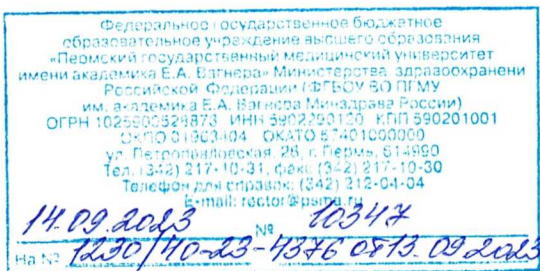 Федеральное государственное бюджетное
образовательное учреждение высшего образования
«Пермский государственный медицинский университет
имени академика Е.А. Вагнера» Министерства здравоохранени
Российской Федерации (ФГБОУ ВО ПГМУ
им. академика Е.А. Вагнера Минздрава России)
ОГРН КПП 590201001
ОКПО ОКАТО 57401000000
ул. Петропавловская, 26, г. Пермь, 614990
Тел. (342) 217-10-31, факс (342) 217-10-30
Телефон для справок: (342) 212-04-04
E-mail: rector@psma.ru
14.09.2023 № 10347
На № 1230/40-23-4376 от 13.09.2023